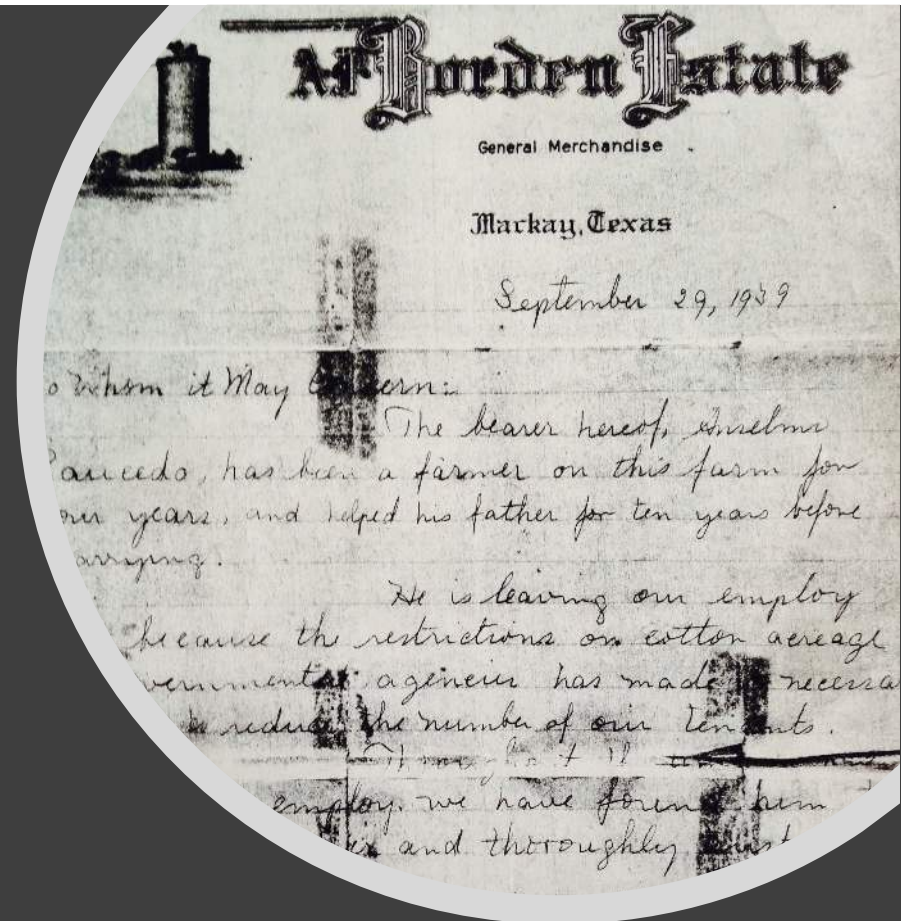 A.F. Borden Estate
General Merchandise
Mackay, Texas
September 29, 1939
o Whom it May Concern:
The bearer hereof, Anselmo
aucedo, has been a farmer on this farm for
our years, and helped his father for ten years before
arrying.
He is leaving our employ
because the restrictions on cotton acreage
vernmental agencies has made necessa
reduce the number of our tenants.
employ, we have found him
and thoroughly